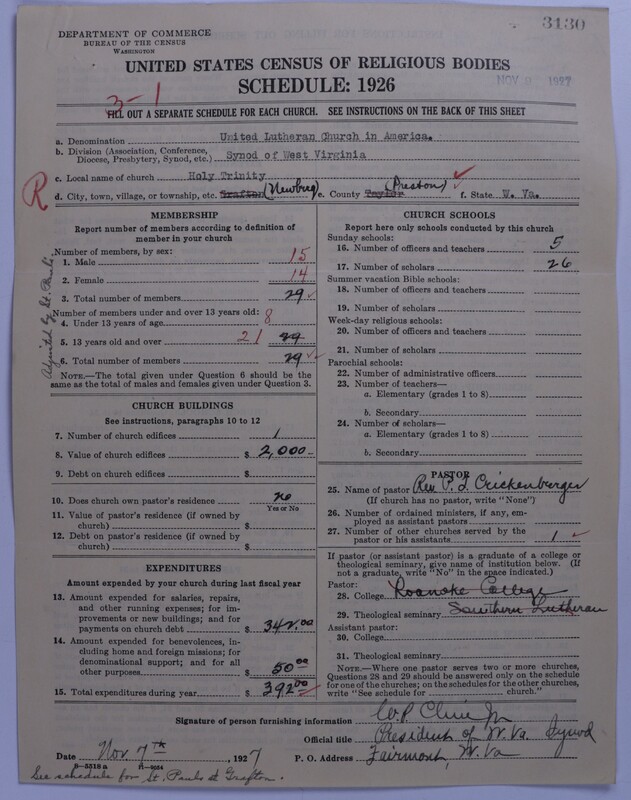 3130
DEPARTMENT OF COMMERCE
BUREAU OF THE CENSUS
WASHINGTON
UNITED STATES CENSUS OF RELIGIOUS BODIES
SCHEDULE: 1926
NOV 8 1927
3-1
FILL OUT A SEPARATE SCHEDULE FOR EACH CHURCH. SEE INSTRUCTIONS ON THE BACK OF THIS SHEET
a. Denomination United Lutheran Church in America.
b. Division (Association, Conference, Diocese, Presbytery, Synod, etc.) Synod of West Virginia
c. Local name of church Holy Trinity
R
d. City, town, village, or township, etc. Grafton (Newburg) e. County Taylor (Preston) f. State W. Va.
MEMBERSHIP
Report number of members according to definition of
member in your church
Number of members, by sex:
1. Male 15
2. Female 14
3. Total number of members 29
Number of members under and over 13 years old:
4. Under 13 years of age 8
5. 13 years old and over 21 29
6. Total number of members 29
NOTE.—The total given under Question 6 should be
same as the total of males and females given under Question 3.
Adjusted by St. Pauls
CHURCH BUILDINGS
See instructions, paragraphs 10 to 12
7. Number of church edifices 1
8. Value of church edifices $ 2,000
9. Debt on church edifices $
10. Does church own pastor's residence no
Yes or No
11. Value of pastor's residence (if owned by
church) $
12. Debt on pastor's residence (if owned by
church) $
EXPENDITURES
Amount expended by your church during last fiscal year
13. Amount expended for salaries, repairs,
and other running expenses; for im-
provements or new buildings; and for
payments on church debt $ 342.00
14. Amount expended for benevolences, in-
cluding home and foreign missions; for
denominational support; and for all
other purposes $ 50.00
15. Total expenditures during year $ 392.00
CHURCH SCHOOLS
Report here only schools conducted by this church
Sunday schools:
16. Number of officers and teachers 5
17. Number of scholars 26
Summer vacation Bible schools:
18. Number of officers and teachers
19. Number of scholars
Week-day religious schools:
20. Number of officers and teachers
21. Number of scholars
Parochial schools:
22. Number of administrative officers
23. Number of teachers—
a. Elementary (grades 1 to 8)
b. Secondary
24. Number of scholars—
a. Elementary (grades 1 to 8)
b. Secondary
PASTOR
25. Name of pastor Rev P. L. Crickenberger
(If church has no pastor, write "None")
26. Number of ordained ministers, if any, em-
ployed as assistant pastors
27. Number of other churches served by the
pastor or his assistants 1
If pastor (or assistant pastor) is a graduate of a college or
theological seminary, give name of institution below. (If
not a graduate, write "No" in the space indicated.)
Pastor:
28. College Roanoke College
29. Theological seminary Southern Lutheran
Assistant pastor:
30. College
31. Theological seminary
NOTE.—Where one pastor serves two or more churches,
Questions 28 and 29 should be answered only on the schedule
for one of the churches; on the schedules for the other churches,
write "See schedule for church."
Signature of person furnishing information W. P. Cline Jr
Official title President of W. Va. Synod
Date Nov 7th, 1927 P. O. Address Fairmont, W. Va
8-5518a 11-9054
See schedule for St. Pauls at Grafton.